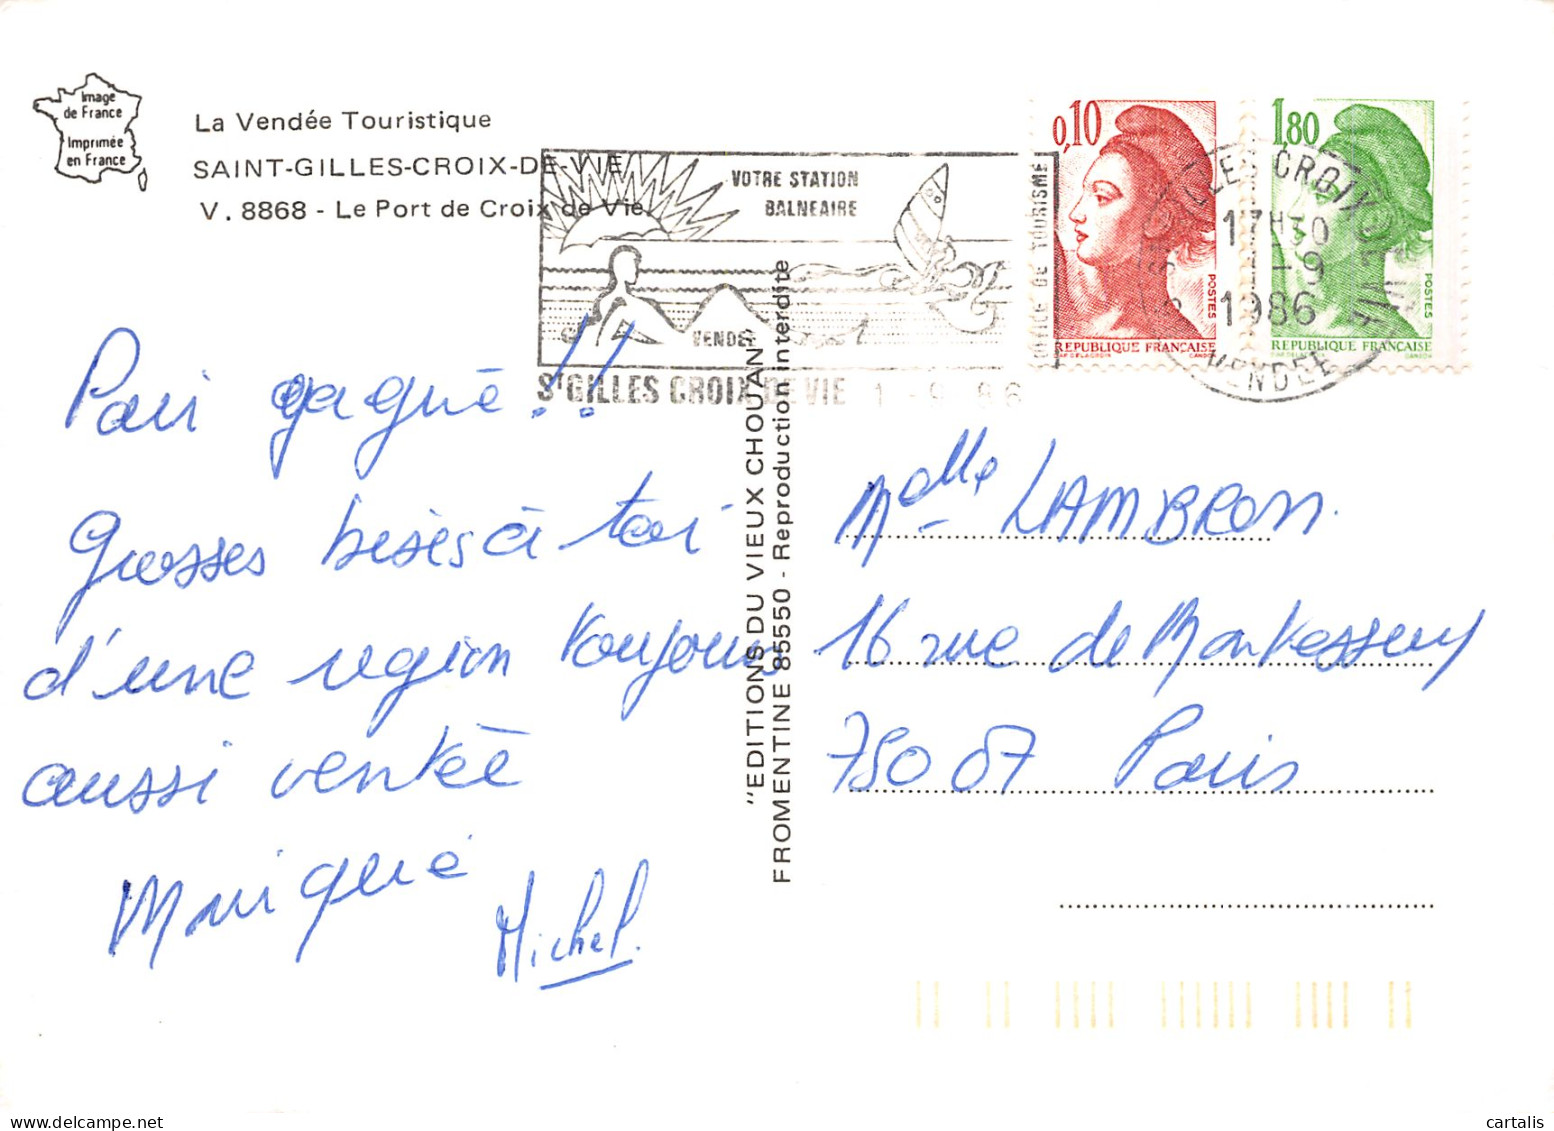 Image
de France
Imprimée
en France
La Vendée Touristique
SAINT-GILLES-CROIX-DE-VIE
V. 8868 - Le Port de Croix de Vie.
VOTRE STATION
BALNEAIRE
VENDEE
OFFICE DE TOURISME
ST GILLES CROIX DE VIE 1-9 86
0,10
POSTES
REPUBLIQUE FRANÇAISE
1,80
POSTES
REPUBLIQUE FRANÇAISE
GILLES CROIX DE VIE
17H30
1-9
1986
VENDEE
Pari gagné !!
Grosses bises à toi
d'une région toujours
aussi ventée
Monique
Michel.
"EDITIONS DU VIEUX CHOUAN"
FROMENTINE 85550 - Reproduction interdite
Melle LAMBRON.
16 rue de Montessuy
75007 Paris
cartalis
delcampe.net